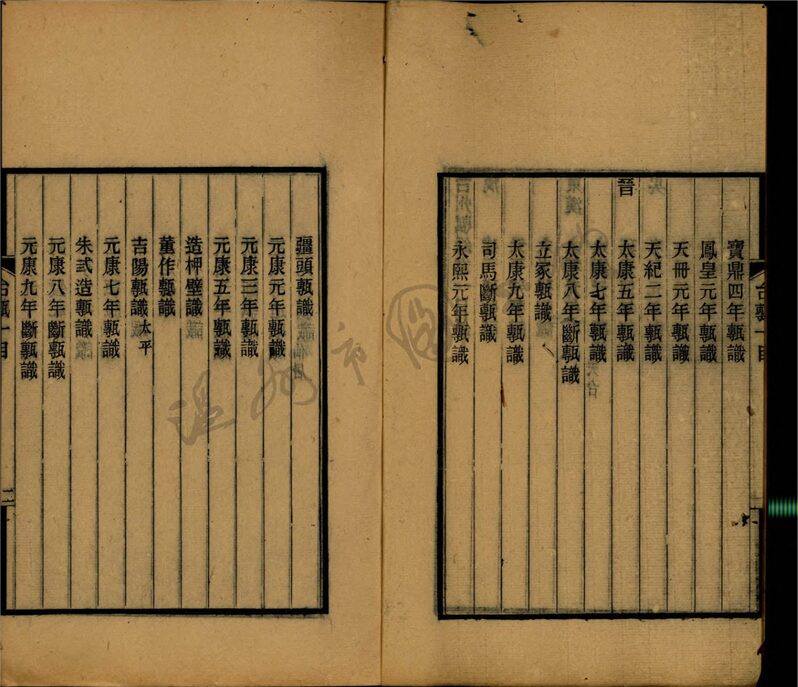 寶鼎四年甎識
鳳皇元年甎識
天冊元年甎識
天紀二年甎識
晉
太康五年甎識
太康七年甎識
太康八年斷甎識
立冢甎識
太康九年甎識
司馬斷甎識
永熙元年甎識
疆頭甎識
元康元年甎識
元康三年甎識
元康五年甎識
造柙壁識
董作甎識
吉陽甎識 太平
元康七年甎識
朱武造甎識
元康八年斷甎識
元康九年斷甎識
台甎一目
二